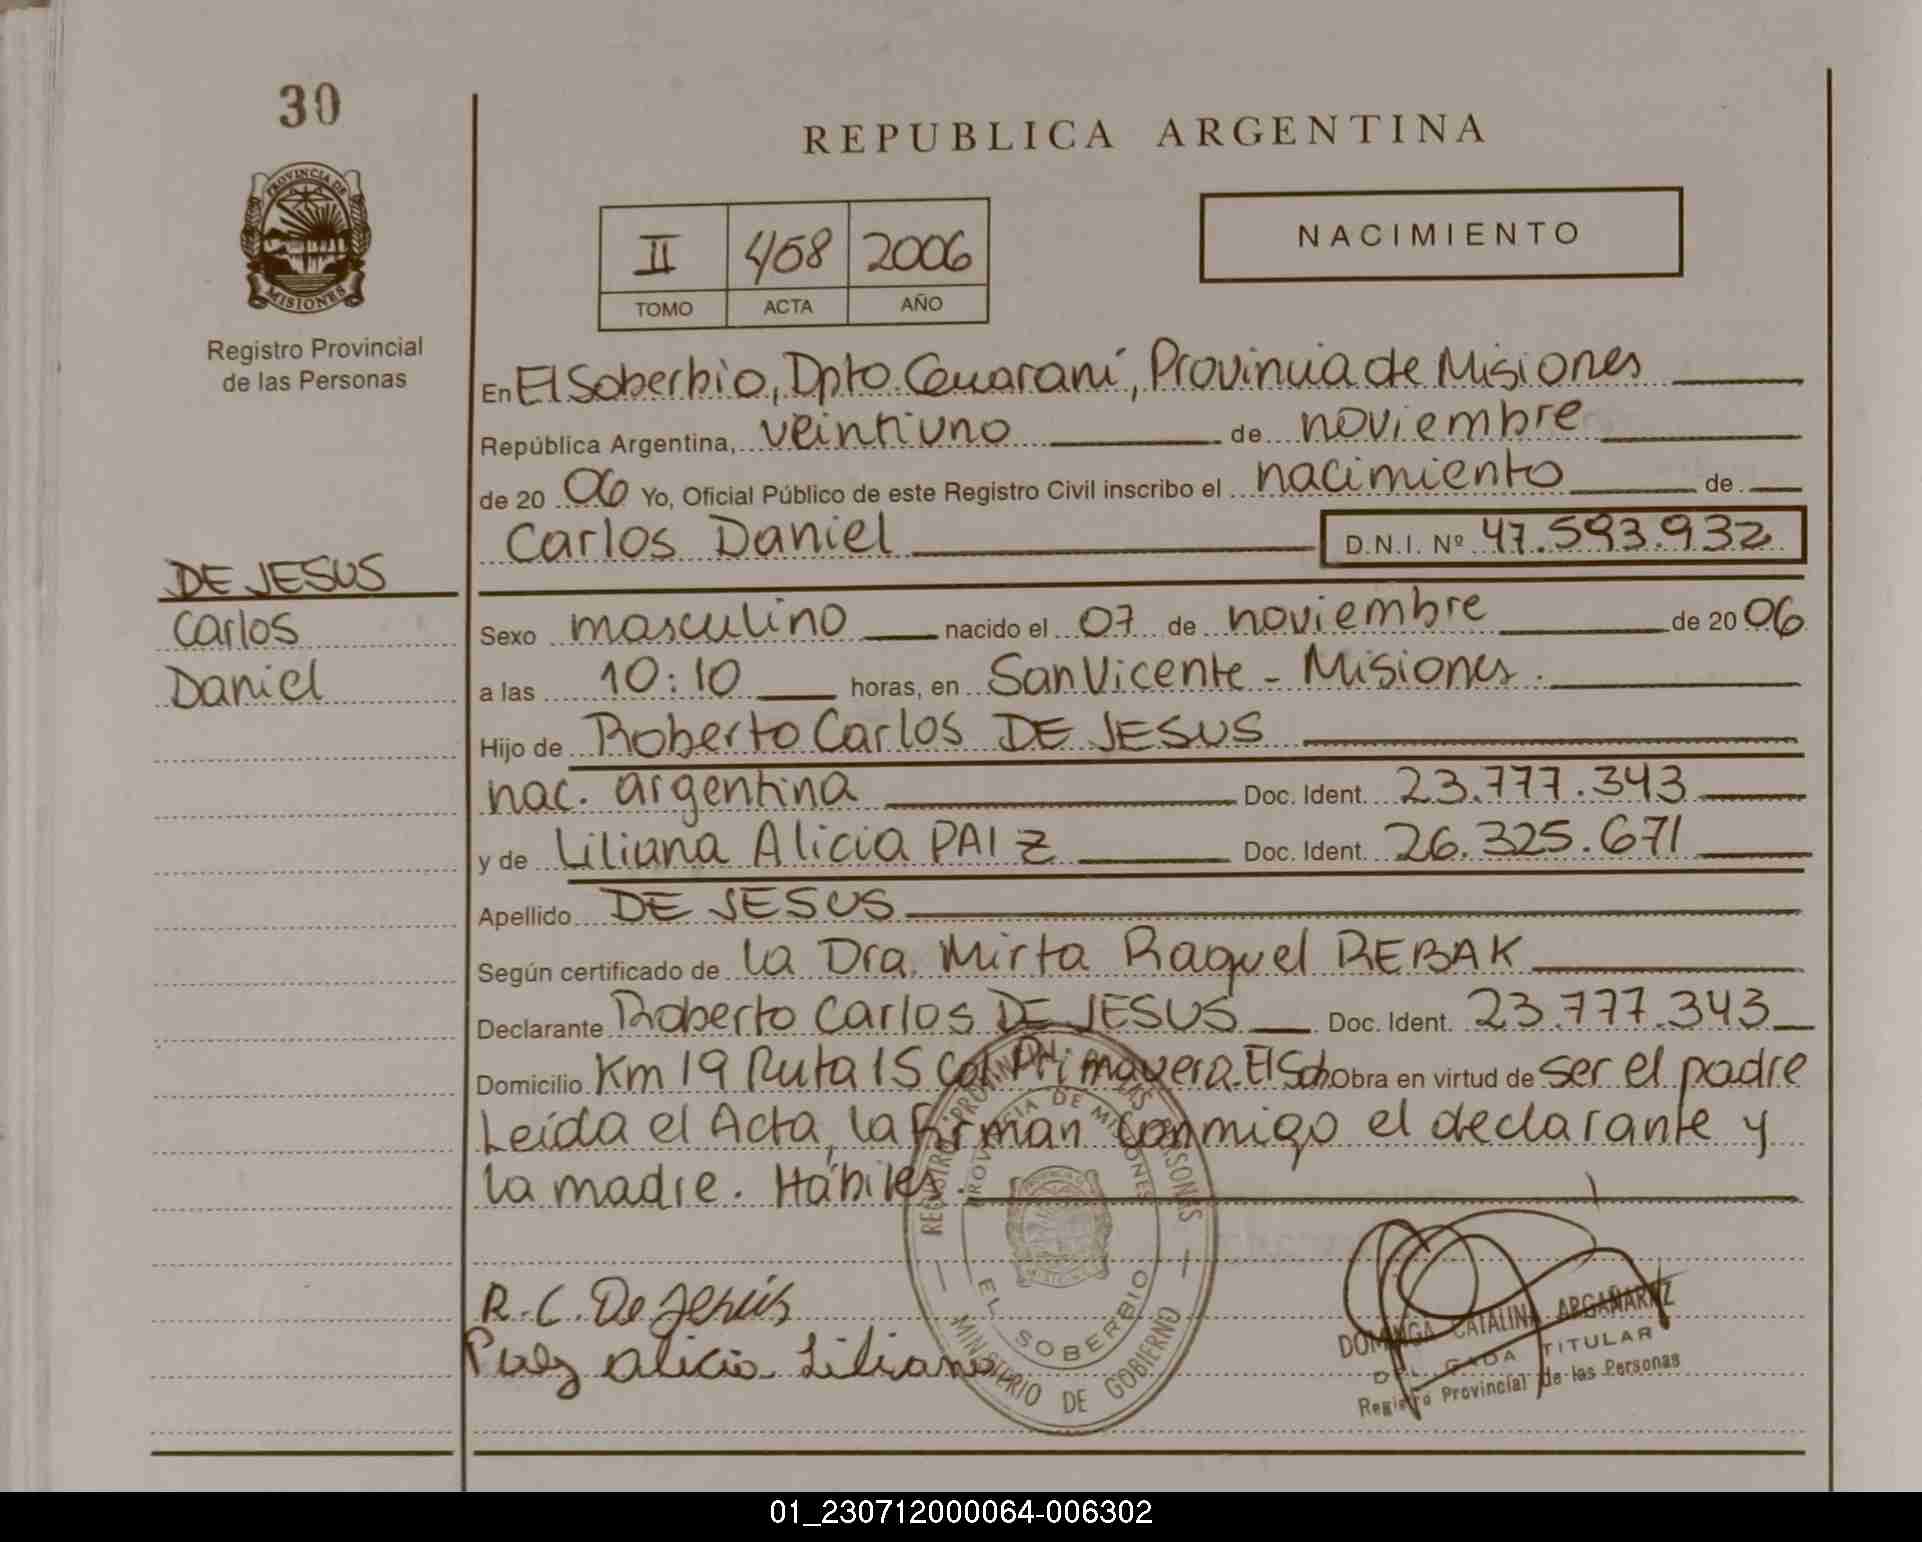 30
REPUBLICA ARGENTINA
PROVINCIA DE
MISIONES
Registro Provincial
de las Personas
II 458 2006
TOMO ACTA AÑO
NACIMIENTO
En El Soberbio, Dpto. Guaraní, Provincia de Misiones
República Argentina, veintiuno de noviembre
de 20 06 Yo, Oficial Público de este Registro Civil inscribo el nacimiento de
Carlos Daniel D.N.I. Nº 47.593.932
DE JESUS
Carlos
Daniel
Sexo masculino nacido el 07 de noviembre de 20 06
a las 10:10 horas, en San Vicente - Misiones.
Hijo de Roberto Carlos DE JESUS
nac. argentina Doc. Ident. 23.777.343
y de Liliana Alicia PAIZ Doc. Ident. 26.325.671
Apellido DE JESUS
Según certificado de la Dra. Mirta Raquel REBAK
Declarante Roberto Carlos DE JESUS Doc. Ident. 23.777.343
Domicilio Km 19 Ruta 15 Col. Primavera. El Sob. Obra en virtud de ser el padre
Leída el Acta, la firman conmigo el declarante y
la madre. Hábiles.
REGISTRO PROVINCIAL DE LAS PERSONAS
PROVINCIA DE MISIONES
EL SOBERBIO
MINISTERIO DE GOBIERNO
R. C. De Jesús
Paiz Alicia Liliana
DOMINGA CATALINA ARGAÑARAZ
DELEGADA TITULAR
Registro Provincial de las Personas
01_230712000064-006302